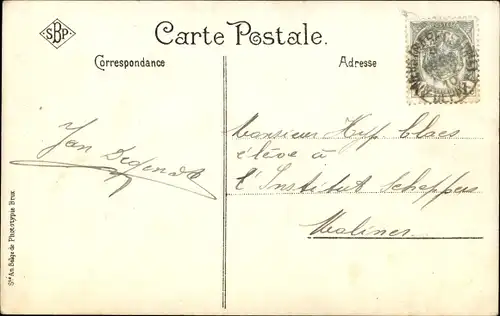 SBP
Carte Postale.
Correspondance
Adresse
Monsieur Hyp. Claes
élève à
l'Institut Scheppers
Malines
Jan
Sté An. Belge de Phototypie Brux.